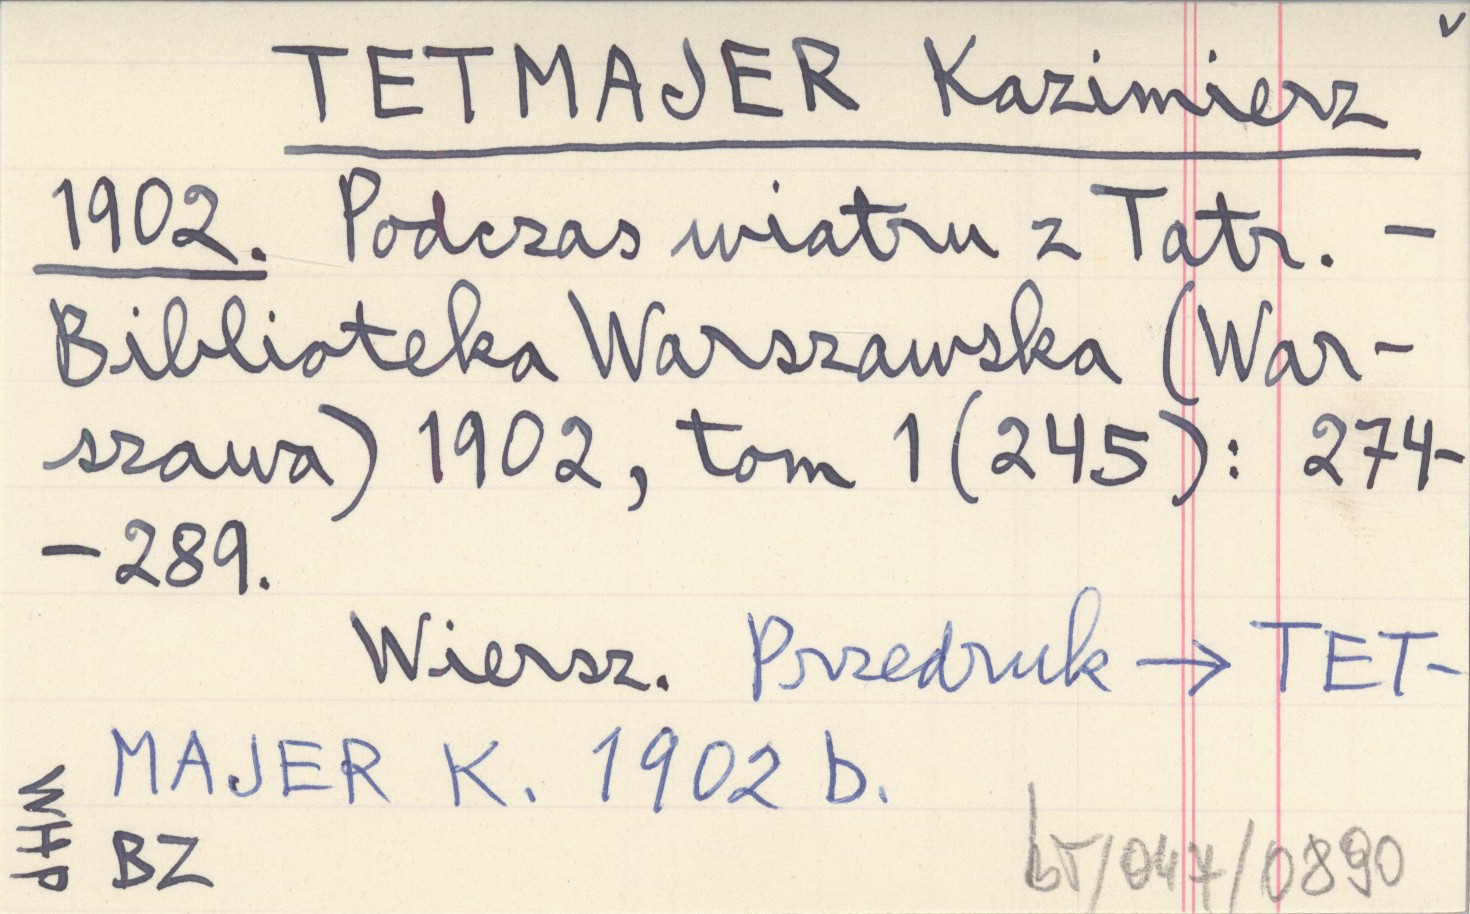 v
TETMAJER Kazimierz
1902. Podczas wiatru z Tatr. -
Biblioteka Warszawska (War-
szawa) 1902, tom 1 (245): 274-
-289.
Wiersz. Przedruk → TET-
MAJER K. 1902 b.
WHP
BZ
bT/047/0890